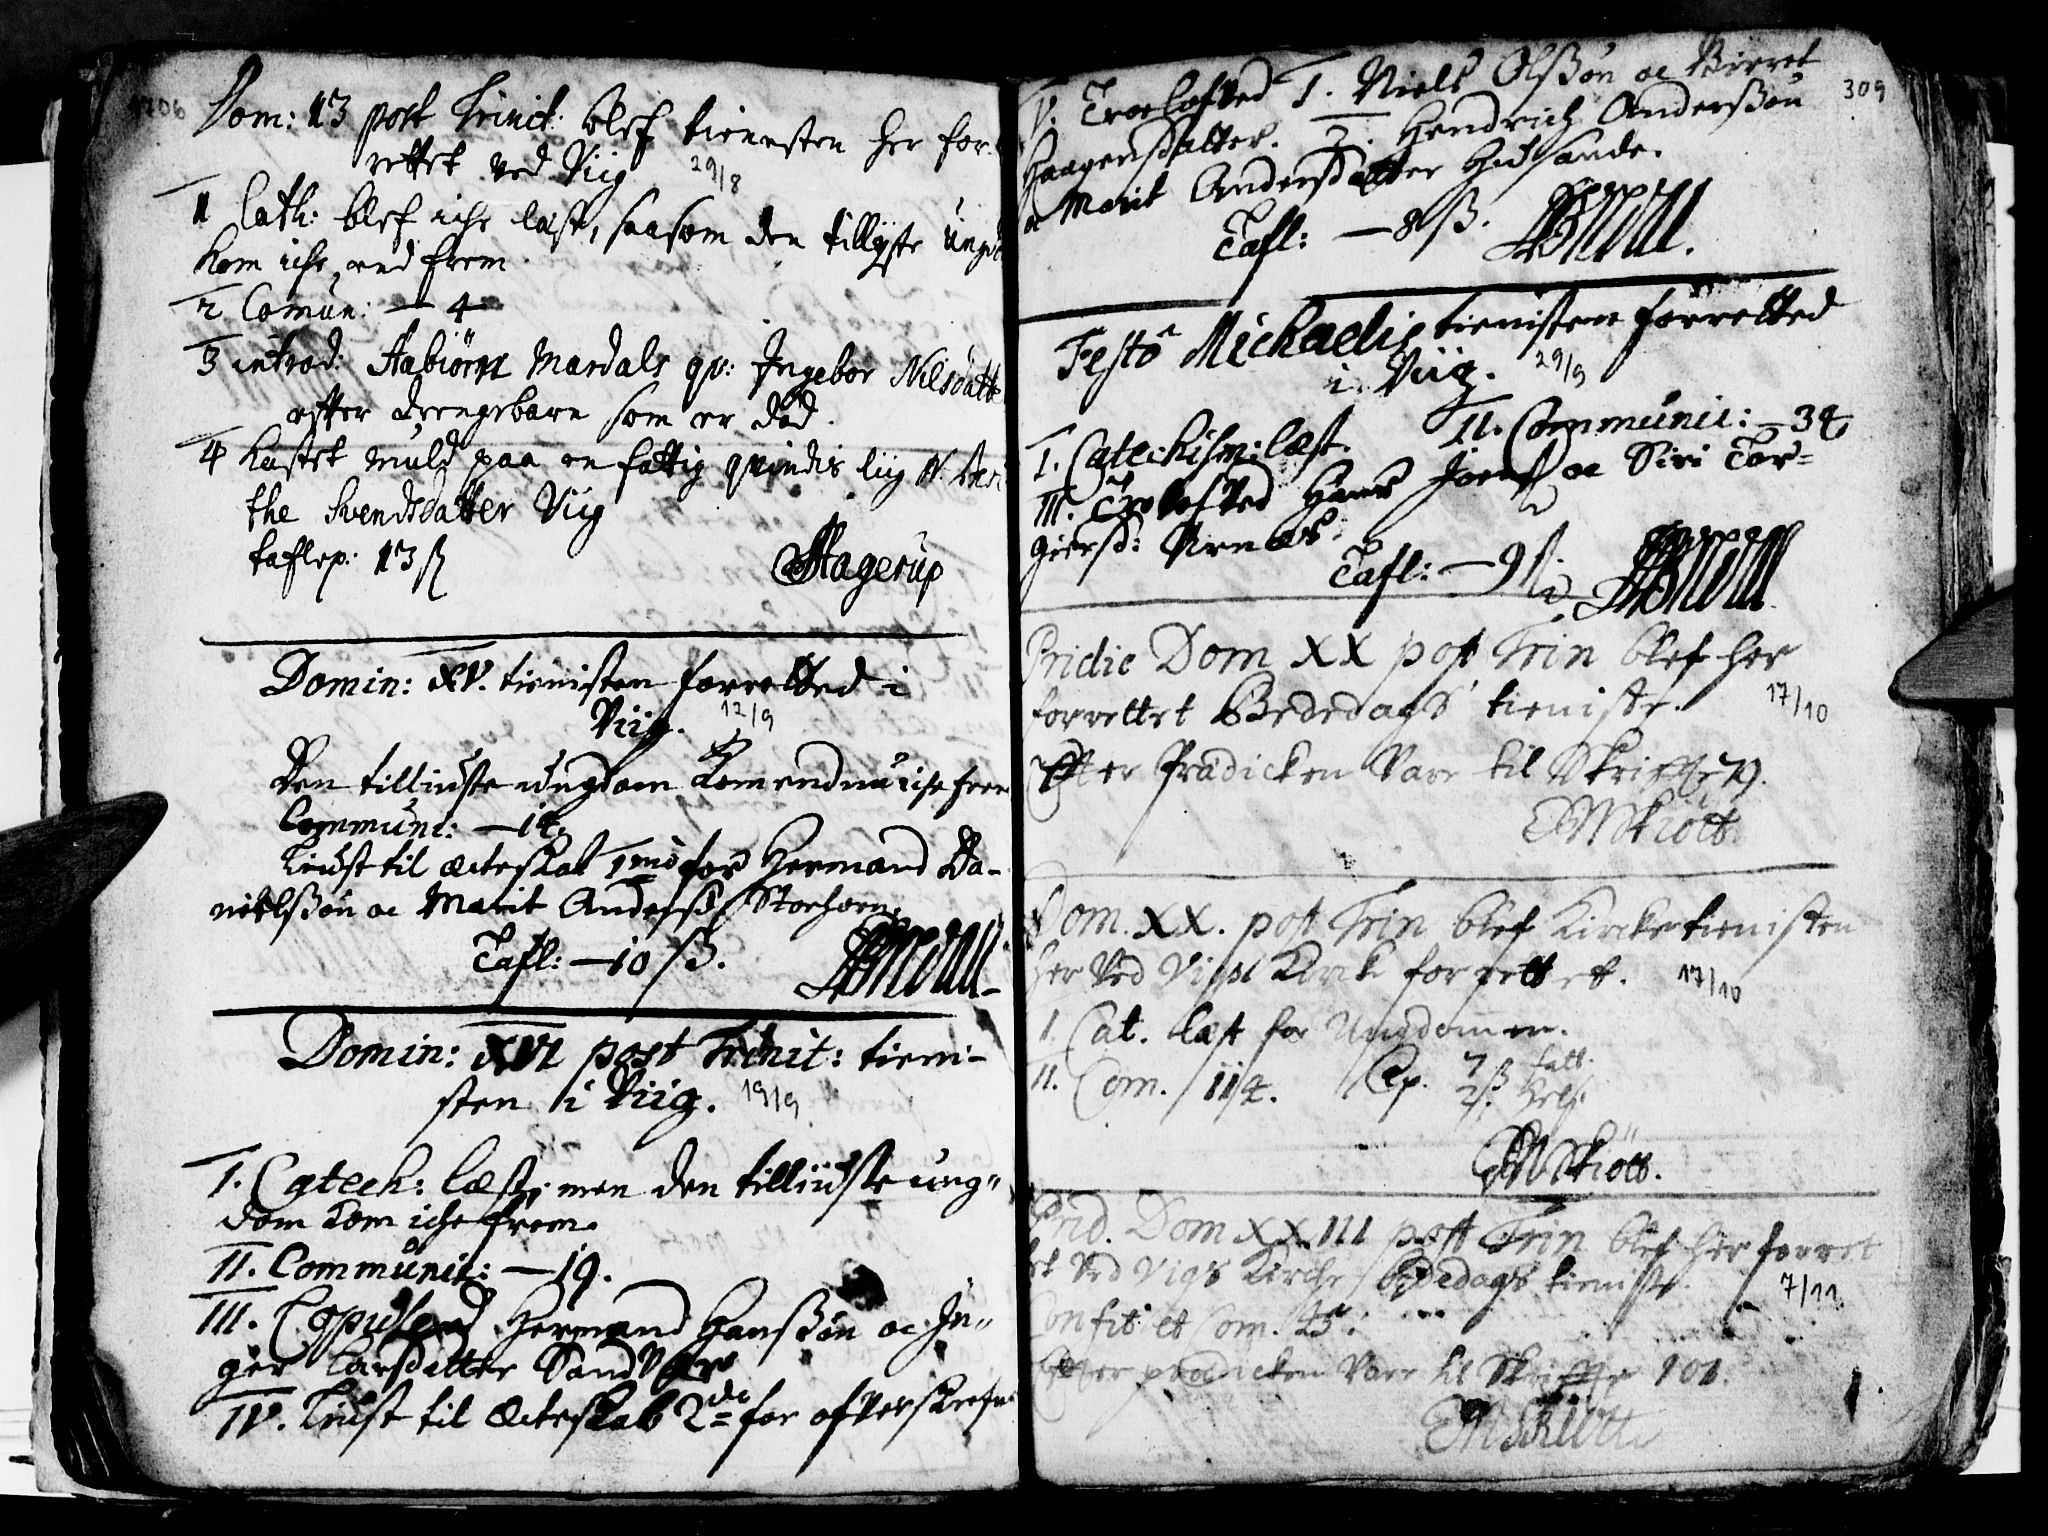 1706
Dom: 13 post Trinit: blef tienesten her for-
rettet ved Viig 29/8
1 Cath: blef iche læst, saasom den tillyste ungd
kom iche end frem.
2 Comun: — 4
3 introd: Aabiörn Mardals qv: Ingebor Nilsdatte
efter drengebarn som er död.
4 kastet muld paa en fattig qvindis liig N. Ber
the Svendsdatter Viig
taflep: 13 ß
Hagerup
Domin: XV. tienisten forretted i
Viig. 12/9
Den tilliuste ungdom kom endnu iche frem
Communi: — 14.
Liust til Ecteskab 1mo for Hermand Da-
nielßön oc Marit Andersd Storhorn.
Tafl: — 10 ß.
Domin: XVI post Trinit: tieni-
sten i Viig. 19/9
I. Catech: læst, men den tilliuste ung-
dom kom iche frem.
II. Communic: — 19.
III. Copulered Hermand Hanßön oc In-
ger Larsdatter Sand
IV. Liust til Ecteskab 2de for ofverskrefne
309
V. Troelofved 1. Niels Olßön oc Birret
Haagensdatter. 2. Hendrich Anderßön
oc Marit Andersdatter
Tafl: — 8 ß.
Festo Michaelis tienisten forretted
i Viig. 29/9
I. Catechism: læst. II. Communic: — 34
III. Trolofved Hans Joens oc Siri Tor-
giersd:
Tafl: — 9 ß.
Pridie Dom XX post Trin blef her
forrettet Bededags tieniste. 17/10
Efter Prædicken Vare til Skriffte 79.
Skiötts.
Dom. XX. post Trin blef Kircketienisten
her ved Vigs Kirck forrettet. 17/10
I. Cat. læst for Ungdommen.
II. Com. 114. Cp. 7 ß fatt.
2 ß.
Skiötts.
Prid. Dom XXIII post Trin blef her forret
et ved Vigs Kirche bededags tieniste. 7/11
Confit: et Com. 45.
Efter prædicken Vare til Skriffte 101.
Skiötts